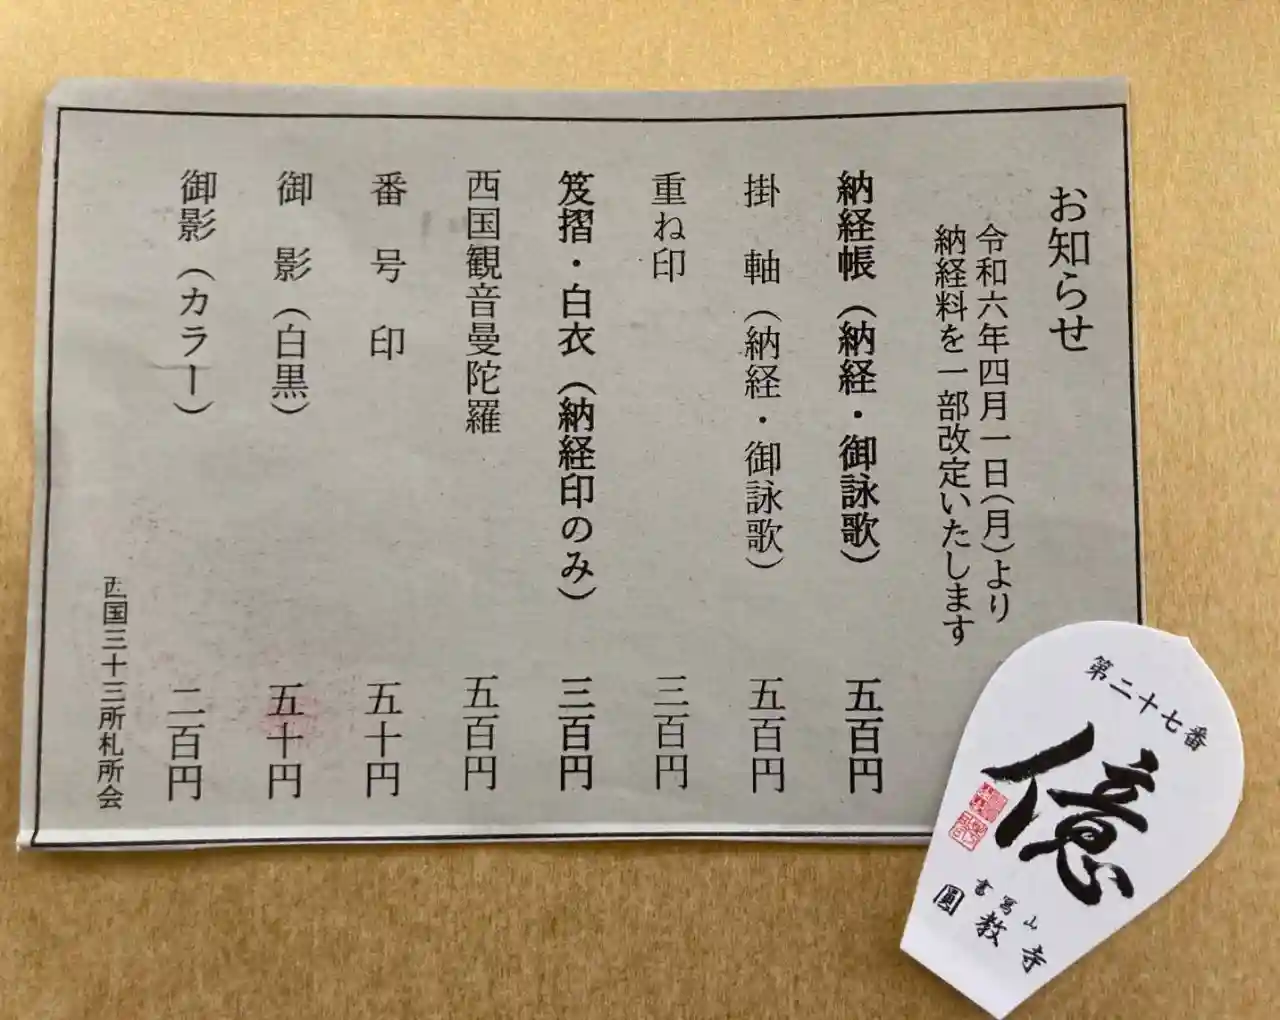 お知らせ
令和六年四月一日(月)より
納経料を一部改定いたします
納経帳（納経・御詠歌）　五百円
掛　軸（納経・御詠歌）　五百円
重ね印　三百円
笈摺・白衣（納経印のみ）　三百円
西国観音曼陀羅　五百円
番　号　印　五十円
御　影（白黒）　五十円
御影（カラー）　二百円
西国三十三所札所会
第二十七番
億
書寫山
圓教寺